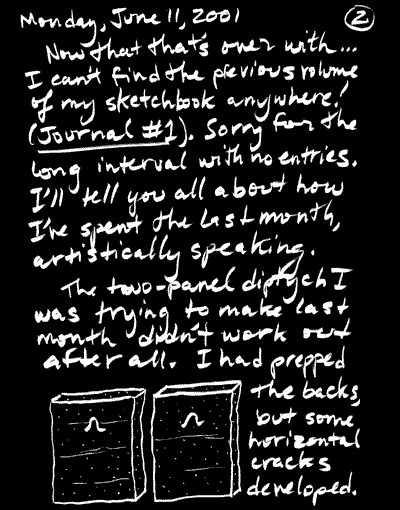 Monday, June 11, 2001
2
Now that that's over with...
I can't find the previous volume
of my sketchbook anywhere!
(Journal #1). Sorry for the
long interval with no entries.
I'll tell you all about how
I've spent the last month,
artistically speaking.
The two-panel diptych I
was trying to make last
month didn't work out
after all. I had prepped
the backs,
but some
horizontal
cracks
developed.